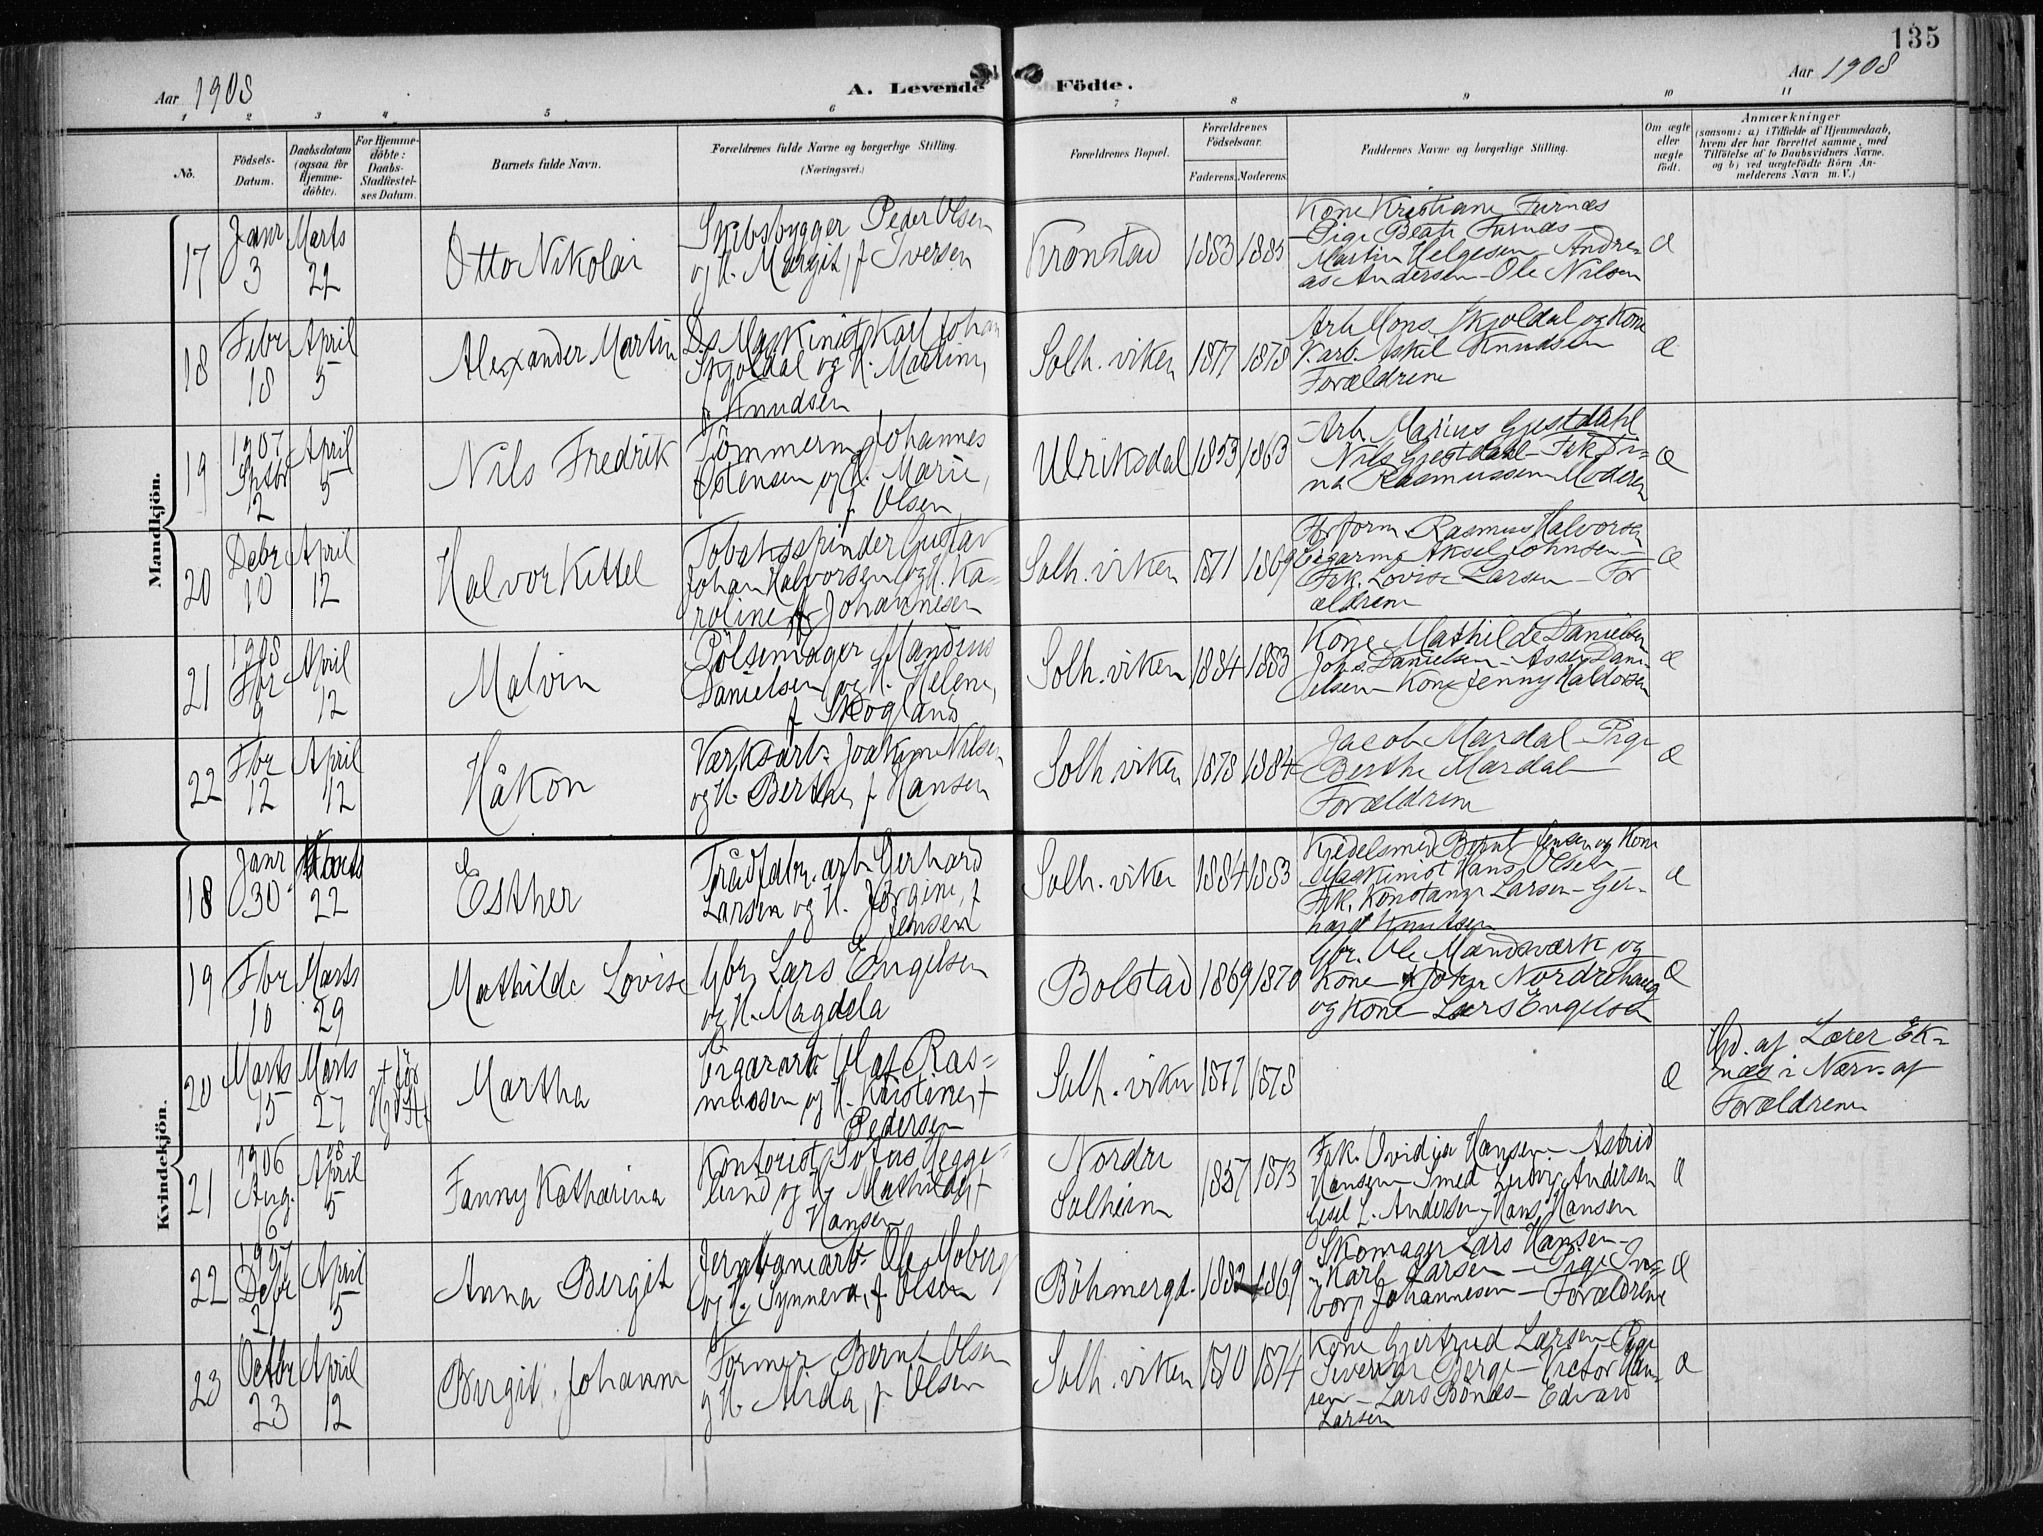 135
Aar 1908
A. Levende Födte.
Aar 1908
1 2 3 4 5 6 7 8 9 10 11
No.
Födsels-
Datum.
Daabsdatum
(ogsaa for
Hjemme-
döbte).
For Hjemme-
döbte:
Daabs-
Stadfæstel-
ses Datum.
Barnets fulde Navn.
Forældrenes fulde Navne og borgerlige Stilling.
(Næringsvei.)
Forældrenes Bopæl.
Forældrenes
Födselsaar.
Faderens. Moderens.
Faddernes Navne og borgerlige Stilling.
Om ægte
eller
uægte
født.
Anmærkninger
(saasom: a) i Tilfælde af Hjemmedaab,
hvem der har forrettet samme, med
Tilföielse af to Daabsvidners Navne,
og b) ved uægtefödte Börn An-
melderens Navn m. V.)
Mandkjön.
17
Janr
3
Marts
22
Otto Nikolai
Skibsbygger Peder Olsen
og H. Margit, f Iversen
Kronstad
1883
1885
Kone Kristiane Furnæs
Pige Beate Furnæs -
Martin Helgesen - Andre-
as Andersen - Ole Nilsen
Æ
18
Febr
18
April
5
Alexander Martin
Ds Maskinist Karl Johan
Skjoldal og H. Martine,
f Knudsen
Solh. viken
1877
1878
Arb Mons Skjoldal og Kone
arb. Askil Knudsen
Forældrene
Æ
19
1907
2
April
5
Nils Fredrik
Tömmerm Johannes
Østensen og H. Marie,
f. Olsen
Ulriksdal
1853
1863
Arb. Marius Gjestdahl
Nils Gjestdahl - Frk Ti-
na Rasmussen Moderen
Æ
20
Debr
10
April
12
Halvor Kittel
Tobakspinder Gustav
Johan Halvorsen og H. Ka-
roline f Johannesen
Solh. viken
1871
1869
Rasmus Halvorsen
Aksel Johnsen -
Frk. Lovise Larsen - For
ældrene
Æ
21
1908
Fbr
9
April
12
Malvin
Pölsemager Mandius
Danielsen og H. Helene,
f Skogland
Solh. viken
1884
1883
Kone Mathilde Danielsen
Johs. Danielsen - Asser Dani-
elsen - Kone Jenny Haldorsen
Æ
22
Fbr
12
April
12
Håkon
Værksarb. Joakim Nilsen
og H. Berthe, f Hansen
Solh. viken
1878
1884
Jacob Mardal - Pige
Berthe Mardal
Forældrene
Æ
Kvindekjön.
18
Janr
30
Marts
22
Esther
Trådfabr. arb Gerhard
Larsen og H. Jörgine, f
Jensen
Solh. viken
1884
1883
Kjedelsmed Bernt Jensen og Kone
Maskinist Hans Olsen -
Frk. Konstanse Larsen - Ger-
hard Knutsen
Æ
19
Fbr
10
Marts
29
Mathilde Lovise
Gbr Lars Engelsen
og H. Magdela
Bolstad
1869
1870
Gbr. Ole Mandsværk og
Kone - Johan Nordrehaug
og Kone - Lars Engelsen
Æ
20
Marts
15
Marts
27
+ för
Martha
Cigararb Olaf Ras-
mussen og H. Kristine, f
Pedersen
Solh. viken
1877
1878
Æ
Hd. af Lærer Ek-
næs i Nærv. af
Forældrene
21
1906
Aug.
6
08
April
5
Fanny Katharina
Kontorist Sofus Hegge-
lund og H. Mathilde, f
Hansen
Nordre
Solheim
1857
1873
Frk. Ovidia Hansen - Astrid
Hansen - Smed Ludvig Andersen
Gesel L. Andersen - Hans Hansen
Æ
22
1907
Debr
27
April
5
Anna Bergit
Jernbanearb. Ole Moberg
og H. Synneva, f Olsen
Böhmergd.
1882
1869
Skomager Lars Hansen -
Karl Larsen - Pige Ing-
borg Johannesen - Forældrene
Æ
23
Octbr
23
April
12
Birgit Johanne
Former Bernt Olsen
og H. Alida, f Olsen
Solh. viken
1870
1874
Kone Gjertrud Larsen - Pige
Sverine Berge - Victor Han-
sen - Lars Bönes - Edvard
Larsen
Æ